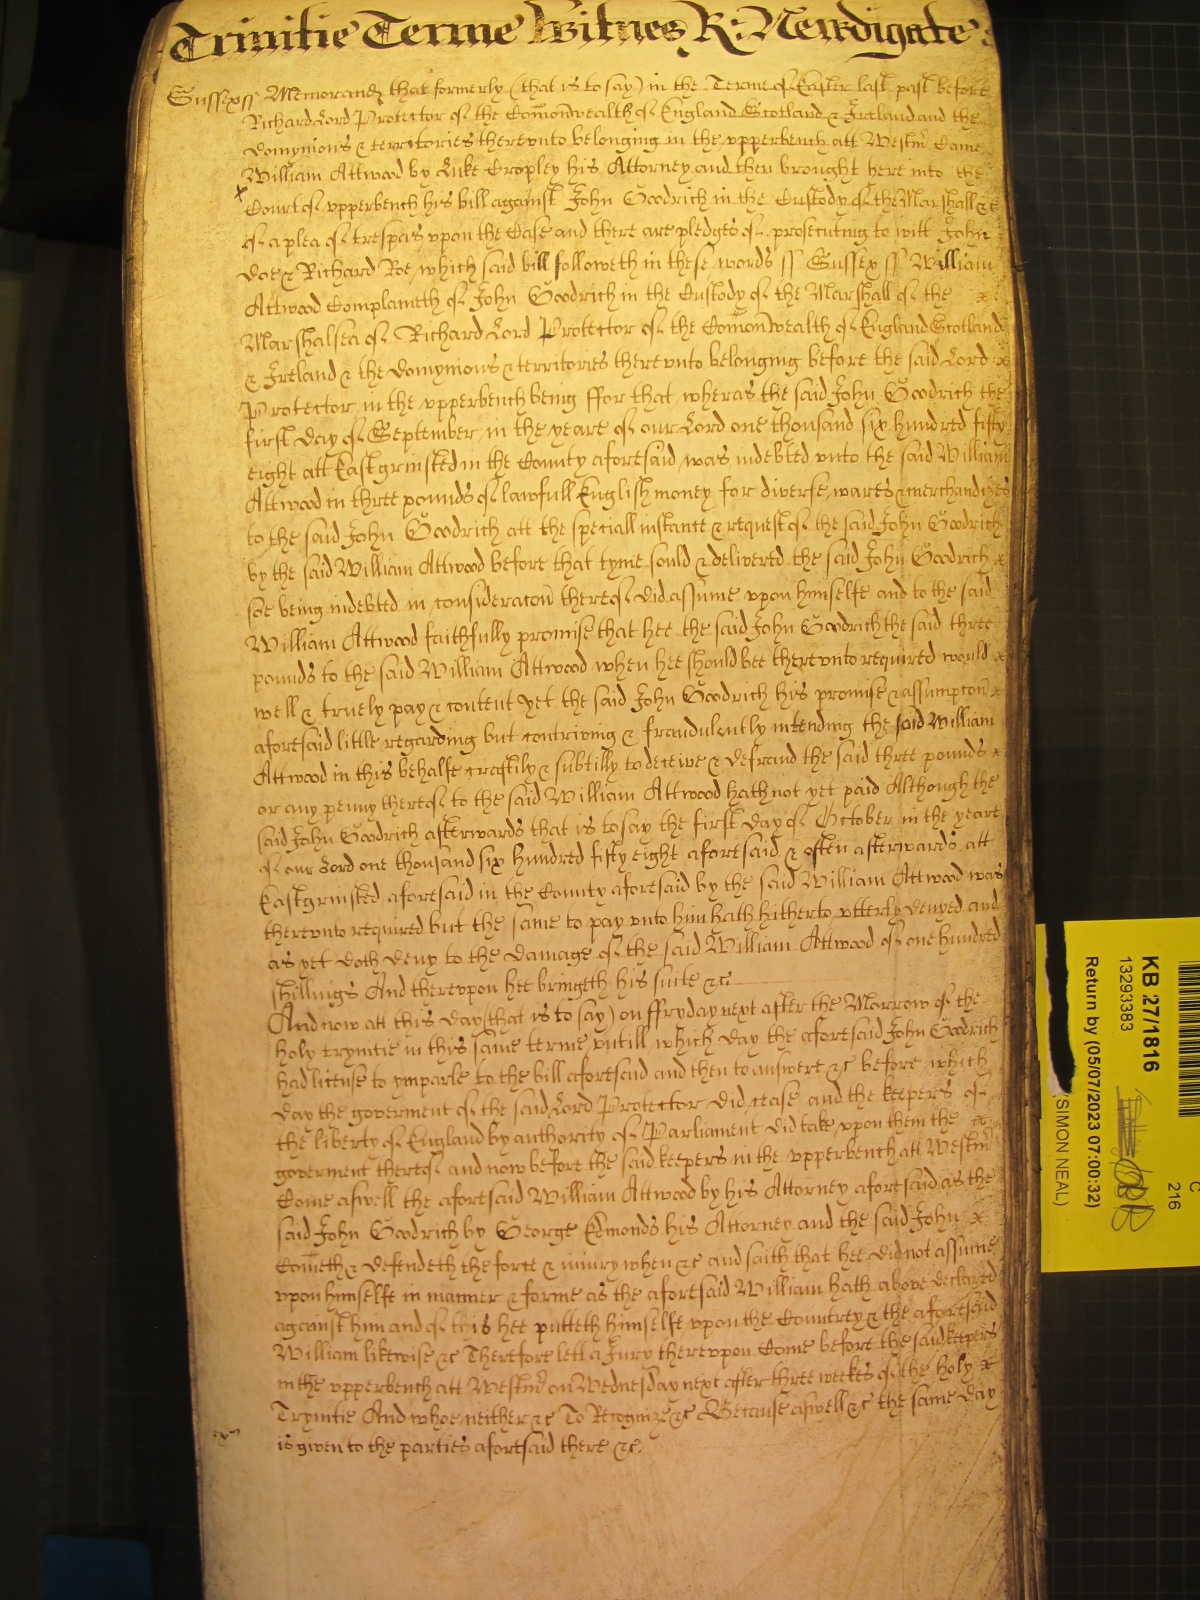 Trinitie Terme Witnes R: Newdigate
Sussex ss Memorand that formerly (that is to say) in the Terme of Easter last past before
Richard Lord Protector of the Comonwealth of England Scotland & Ireland and the
domynions & territories therevnto belonging in the vpperbench att Westm Came
William Attwood by Luke Cropley his Attorney and then brought here into the
Court of vpperbench his bill against John Goodrich in the Custody of the Marshall &c
of a plea of trespas vpon the Case and there are pledges of prosecuting to witt John
Doe & Richard Roe, which said bill followeth in these words ss Sussex ss William
Attwood Complaineth of John Goodrich in the Custody of the Marshall of the x
Marshalsea of Richard Lord Protector of the Comonwealth of England Scotland
& Ireland & the domynions & territories therevnto belonging before the said Lord x
Protector in the vpperbench being ffor that wheras the said John Goodrich the
first day of September in the yeare of our Lord one thousand six hundred fifty
eight att Eastgrinsted in the County aforesaid was indebted vnto the said William
Attwood in three pounds of lawfull English money for diverse wares & merchandizes
to the said John Goodrich att the speciall instance & request of the said John Goodrich
by the said William Attwood before that tyme sould & delivered the said John Goodrich x
soe being indebted in consideracon thereof did assume vpon himselfe and to the said
William Attwood faithfully promise that hee the said John Goodrich the said three
pounds to the said William Attwood when hee should bee therevnto required would x
well & truely pay & content yet the said John Goodrich his promise & assumpcon x
aforesaid little regarding but contriving & fraudulently intending the said William
Attwood in this behalfe craftily & subtilly to deceive & defraud the said three pounds x
or any penny thereof to the said William Attwood hath not yet paid Although the
said John Goodrich afterwards that is to say the first day of October in the yeare
of our Lord one thousand six hundred fifty eight aforesaid & often afterwards att
Eastgrinsted aforesaid in the County aforesaid by the said William Attwood was
therevnto required but the same to pay vnto him hath hitherto vtterly denyed and
as yet doth deny to the damage of the said William Attwood of one hundred
shillings And therevpon hee bringeth his suite &c
And now att this day (that is to say) on ffryday next after the Morrow of the
holy trynitie in this same terme vntill which day the aforesaid John Goodrich
had license to ymparle to the bill aforesaid and then to answere &c before which
day the goverment of the said Lord Protector did cease and the keepers of
the liberty of England by authority of Parliament did take vpon them the x
goverment thereof and now before the said keepers in the vpperbench att Westm
Come aswell the aforesaid William Attwood by his Attorney aforesaid as the
said John Goodrich by George Edmonds his Attorney and the said John x
Cometh & defendeth the force & iniury when &c and saith that hee did not assume
vpon himselfe in manner & forme as the aforesaid William hath above declared
against him and of this hee putteth himselfe vpon the Countrey & the aforesaid
William likewise &c Therefore lett a Jury therevpon Come before the said keepers
in the vpperbench att Westm on Wednesday next after three weekes of the holy x
Trynitie And whoe neither &c To Recognize &c Because aswell &c the same day
is given to the parties aforesaid there &c.
KB 27/1816
13293383
Return by (05/07/2023 07:00:32)
(SIMON NEAL)
C
216